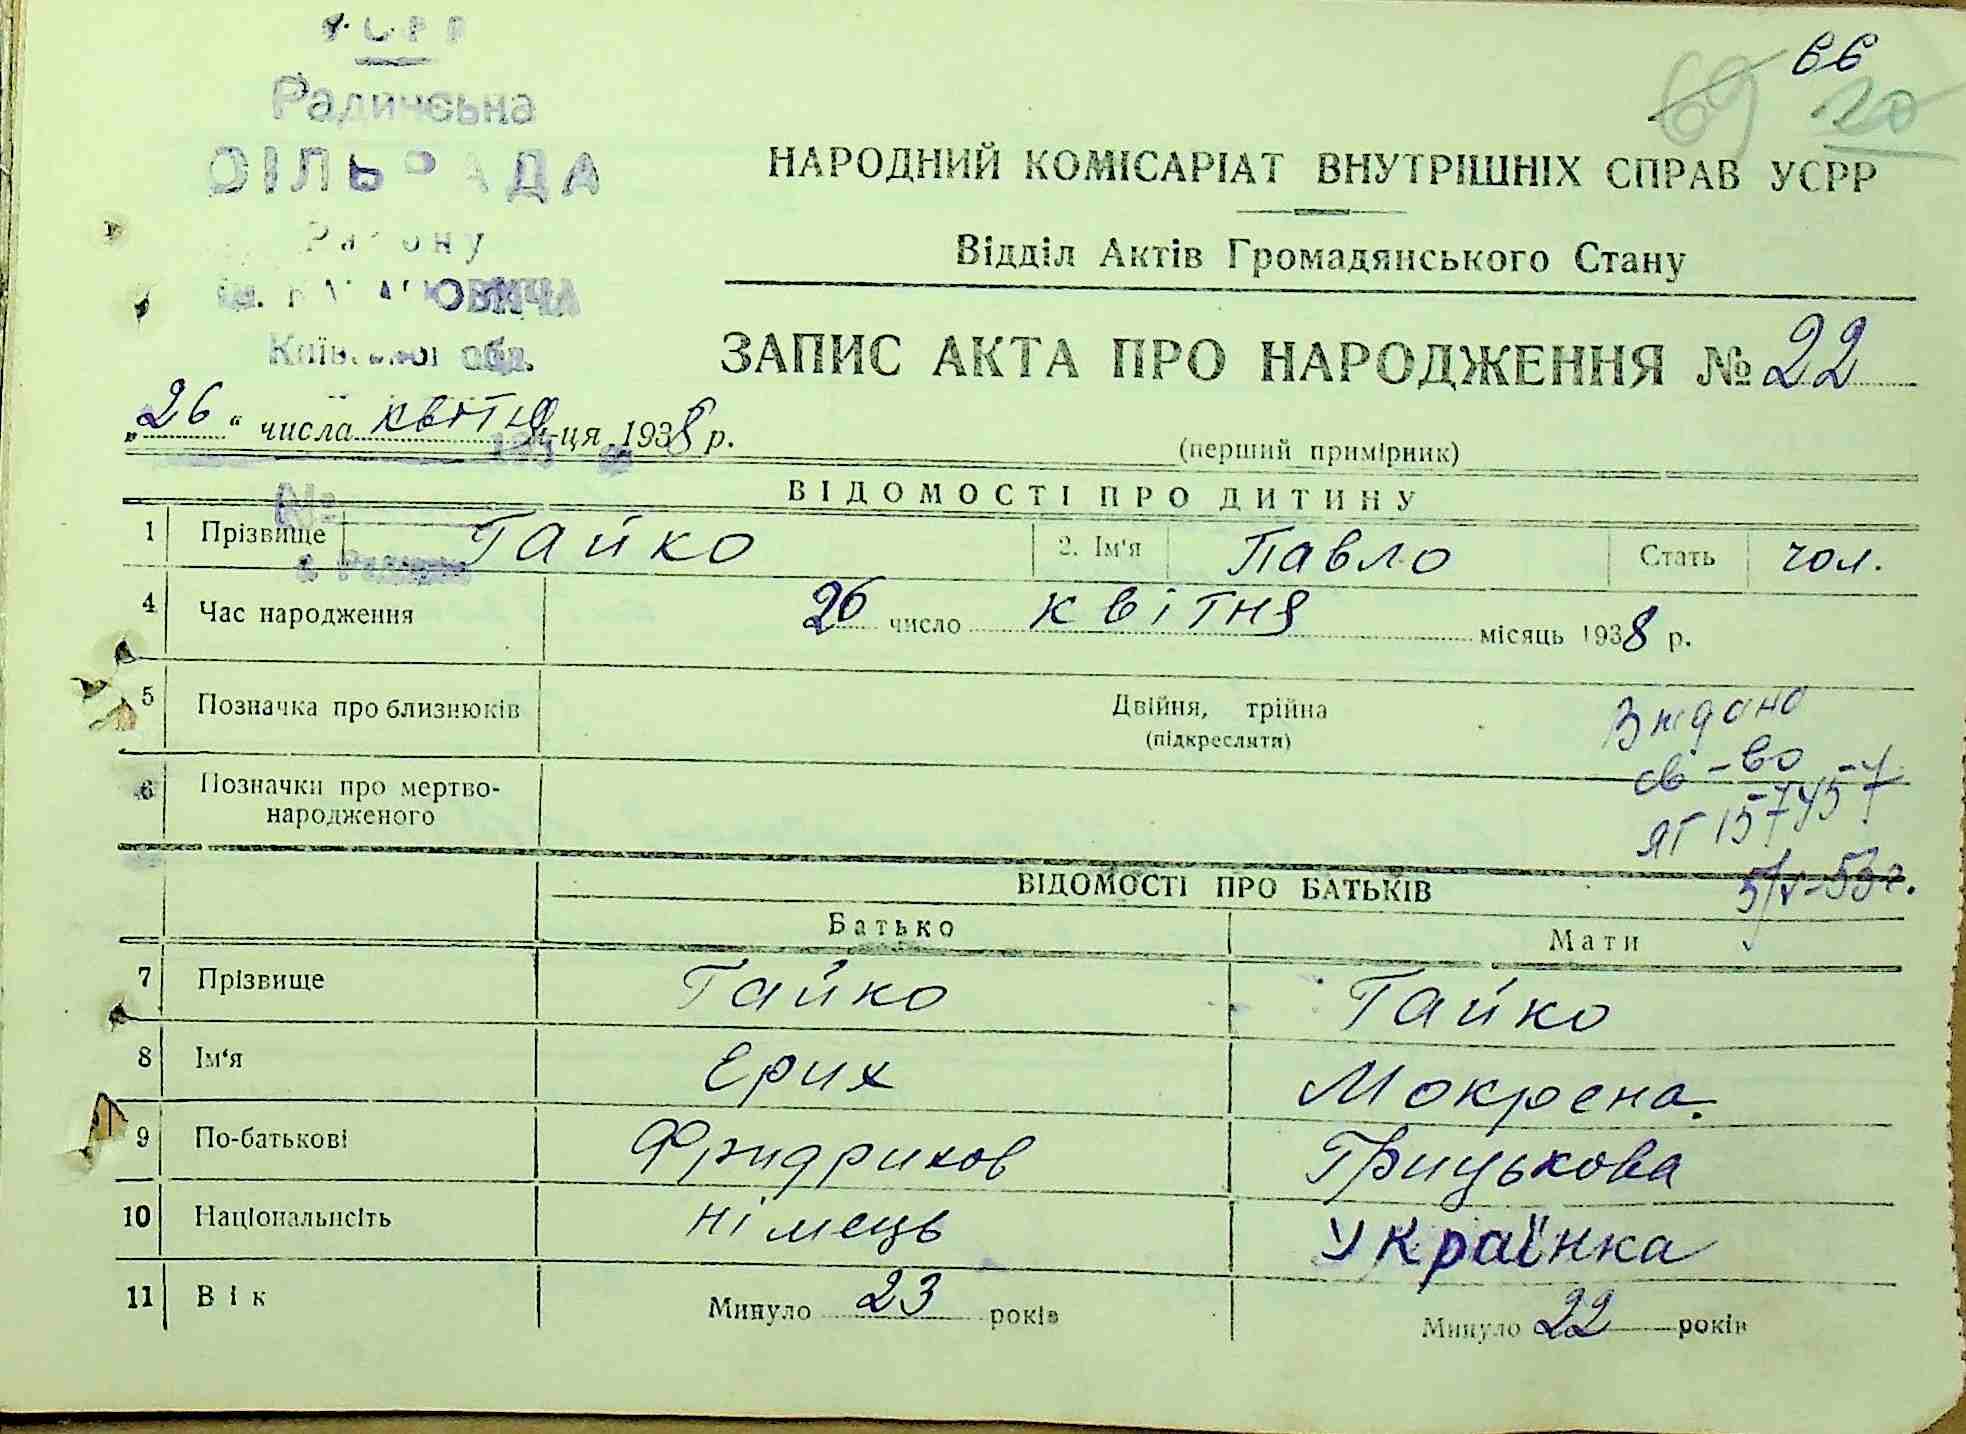 УСРР
Радичська
СІЛЬРАДА
Району
ім. КАГАНОВИЧА
Київської обл.
66
69 20
НАРОДНИЙ КОМІСАРІАТ ВНУТРІШНІХ СПРАВ УСРР
Відділ Актів Громадянського Стану
ЗАПИС АКТА ПРО НАРОДЖЕННЯ № 22
„26“ числа квітня м-ця 1938 р.
(перший примірник)
ВІДОМОСТІ ПРО ДИТИНУ
№
1 Прізвище Гайко 2. Ім'я Павло Стать чол.
4 Час народження 26 число квітня місяць 1938 р.
5 Позначка про близнюків Двійня, трійня
(підкреслити)
6 Позначки про мертво-
народженого
св-во
ЯГ 157457
5/V-53 г.
ВІДОМОСТІ ПРО БАТЬКІВ
Батько Мати
7 Прізвище Гайко Гайко
8 Ім'я Ерих Мокрена
9 По-батькові Фридрихов Грицькова
10 Національність німець Українка
11 Вік Минуло 23 років Минуло 22 років